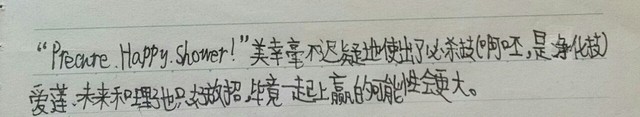 “Precure.Happy.Shower！”美幸毫不迟疑地使出了必杀技(啊呸，是净化技)
爱莲、未来和理也只好放招，毕竟一起上赢的可能性会更大。